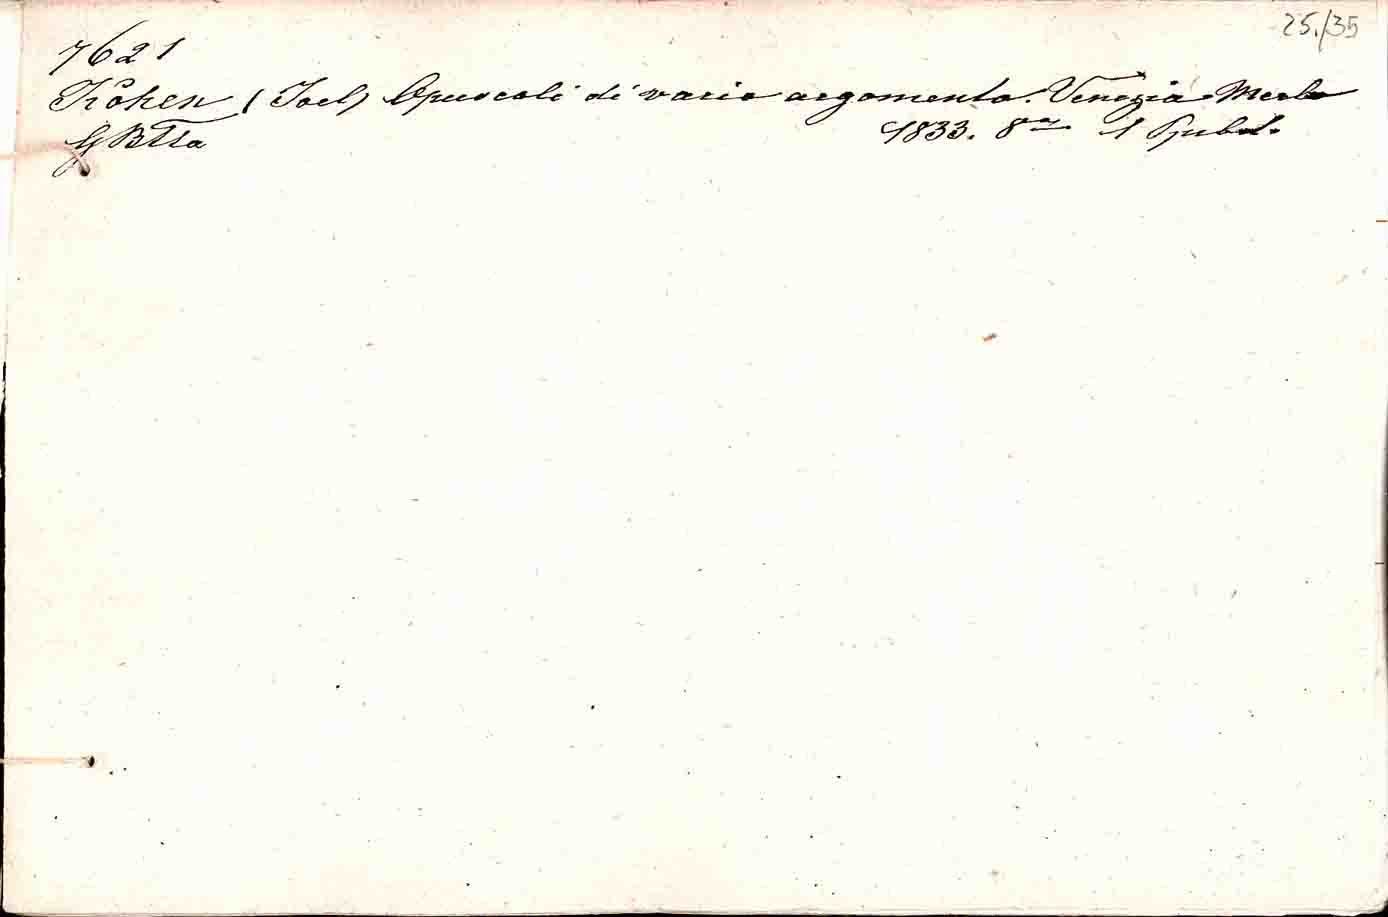 25./35
7621
Kohen (Joel) Opuscoli di vario argomento. Venezia. Merlo
G BTta 1833. 8°